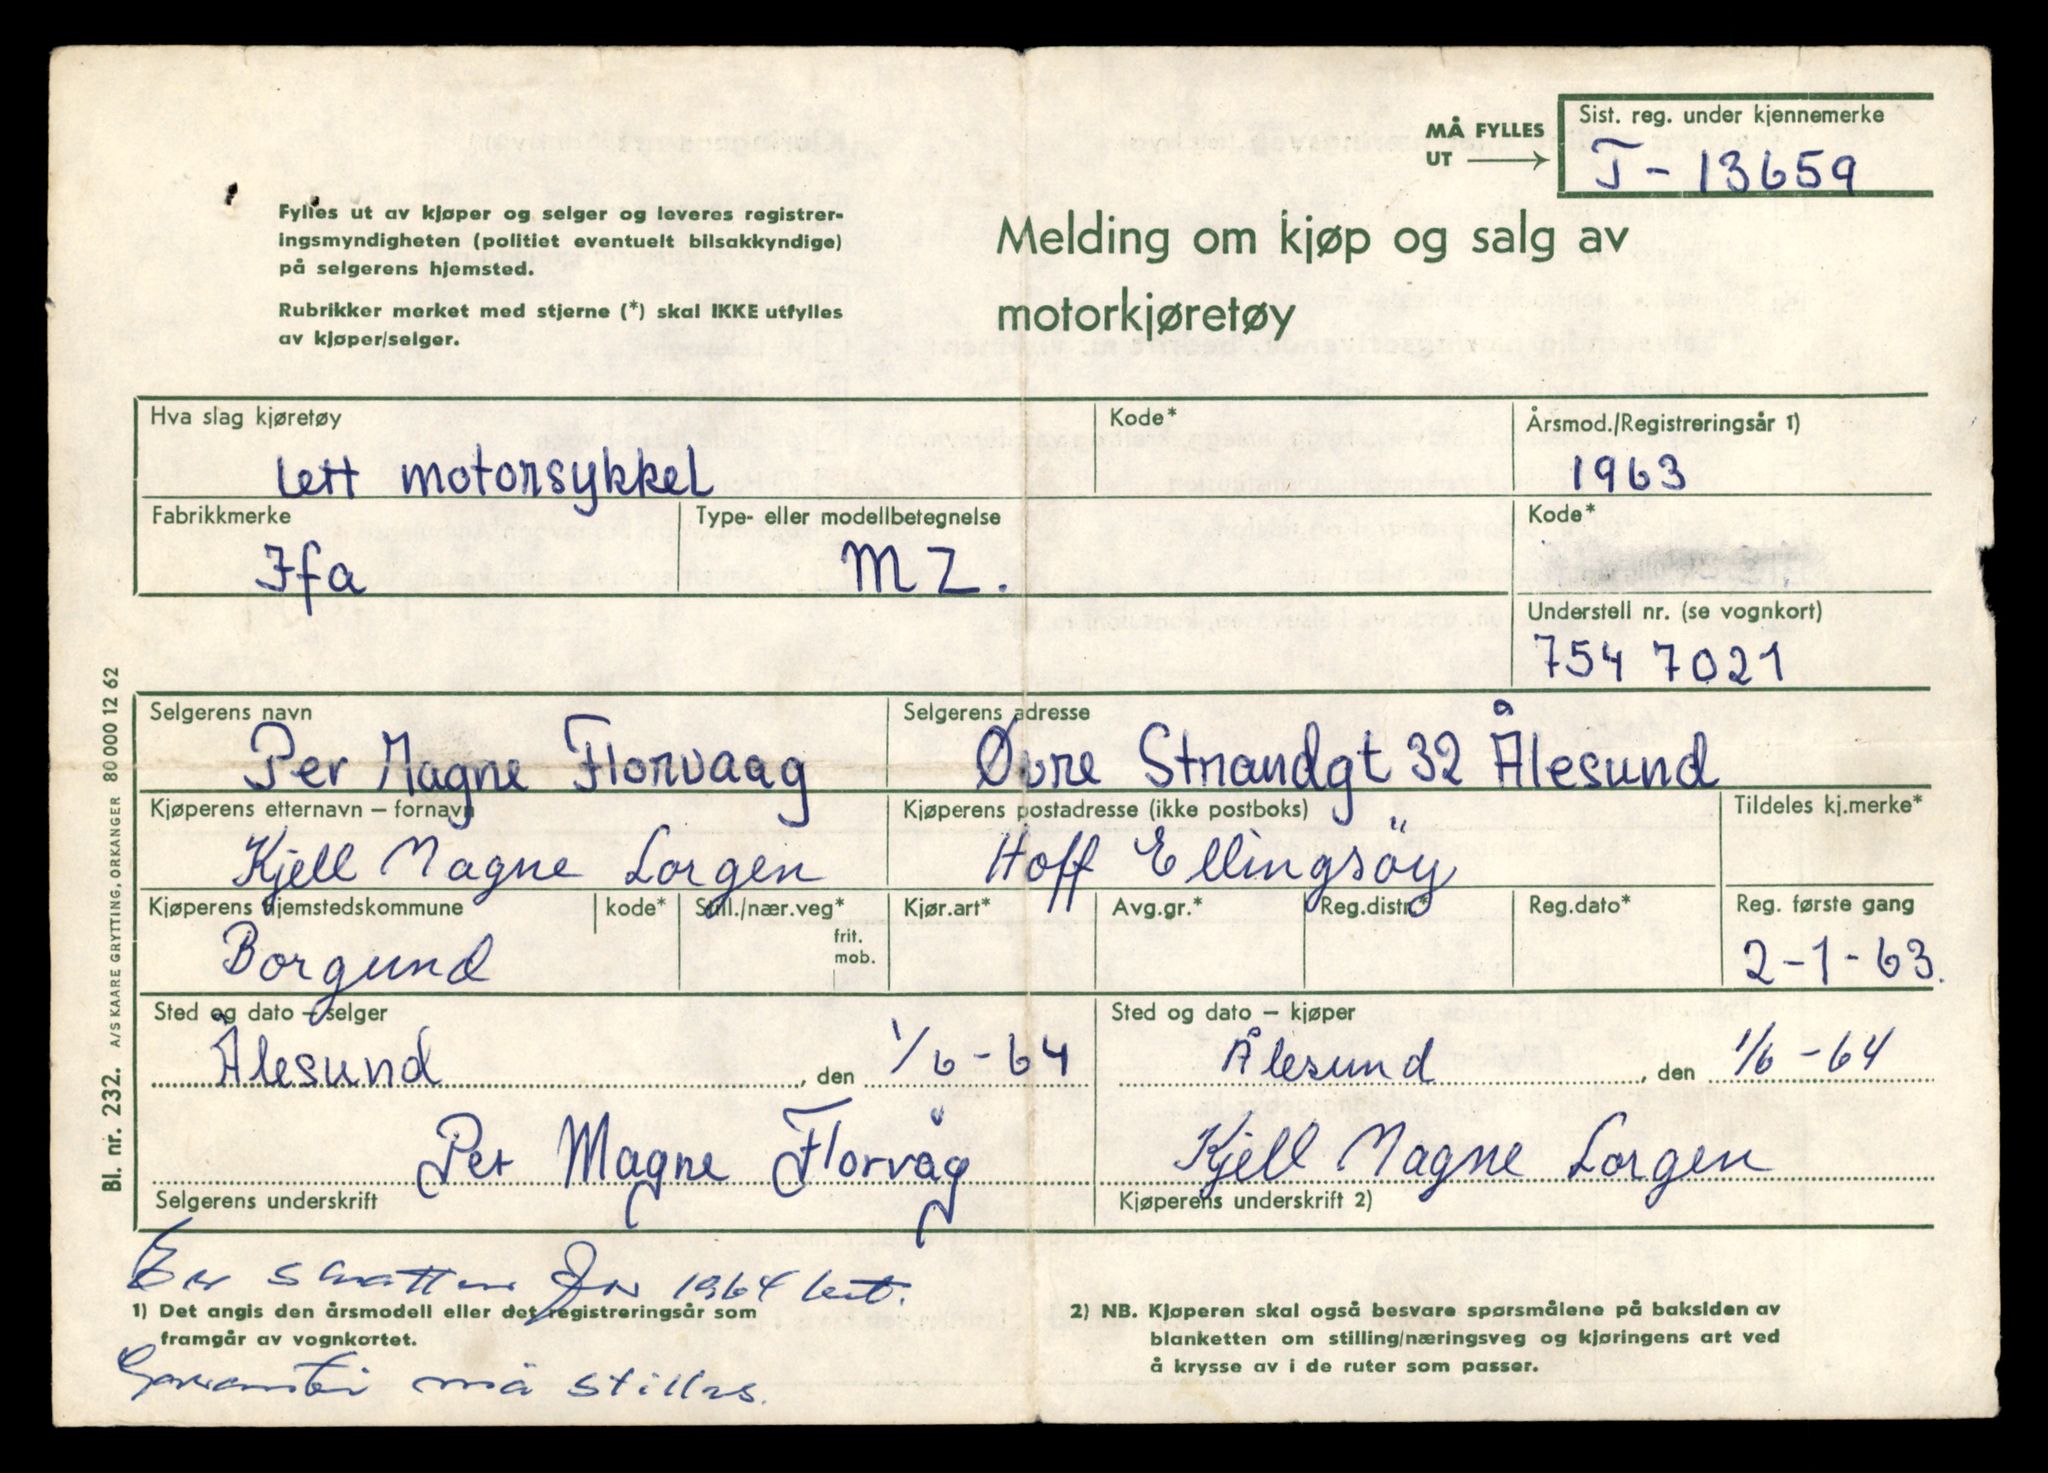 MÅ FYLLES
UT
Sist. reg. under kjennemerke
T - 13659
Fylles ut av kjøper og selger og leveres registrer-
ingsmyndigheten (politiet eventuelt bilsakkyndige)
på selgerens hjemsted.
Rubrikker merket med stjerne (*) skal IKKE utfylles
av kjøper/selger.
Melding om kjøp og salg av
motorkjøretøy
Hva slag kjøretøy
Kode*
Årsmod./Registreringsår 1)
lett motorsykkel
1963
Fabrikkmerke
Type- eller modellbetegnelse
Kode*
Ifa
MZ.
Understell nr. (se vognkort)
754 7021
Selgerens navn
Selgerens adresse
Per Magne Florvaag
Øvre Strandgt 32 Ålesund
Kjøperens etternavn – fornavn
Kjøperens postadresse (ikke postboks)
Tildeles kj.merke*
Kjell Magne Lorgen
Hoff Ellingsöy
Kjøperens hjemstedskommune
kode*
Still./nær.veg*
Kjør.art*
Avg.gr.*
Reg.distr.*
Reg.dato*
Reg. første gang
frit.
mob.
Borgund
2-1-63.
Sted og dato – selger
Sted og dato – kjøper
Ålesund, den 1/6-64
Ålesund, den 1/6-64
Per Magne Florvåg
Kjell Magne Lorgen
Selgerens underskrift
Kjøperens underskrift 2)
Er skatten for 1964 bet.
1) Det angis den årsmodell eller det registreringsår som
framgår av vognkortet.
Garanti må stilles.
2) NB. Kjøperen skal også besvare spørsmålene på baksiden av
blanketten om stilling/næringsveg og kjøringens art ved
å krysse av i de ruter som passer.
Bl. nr. 232. A/S KAARE GRYTTING, ORKANGER 80 000 12 62